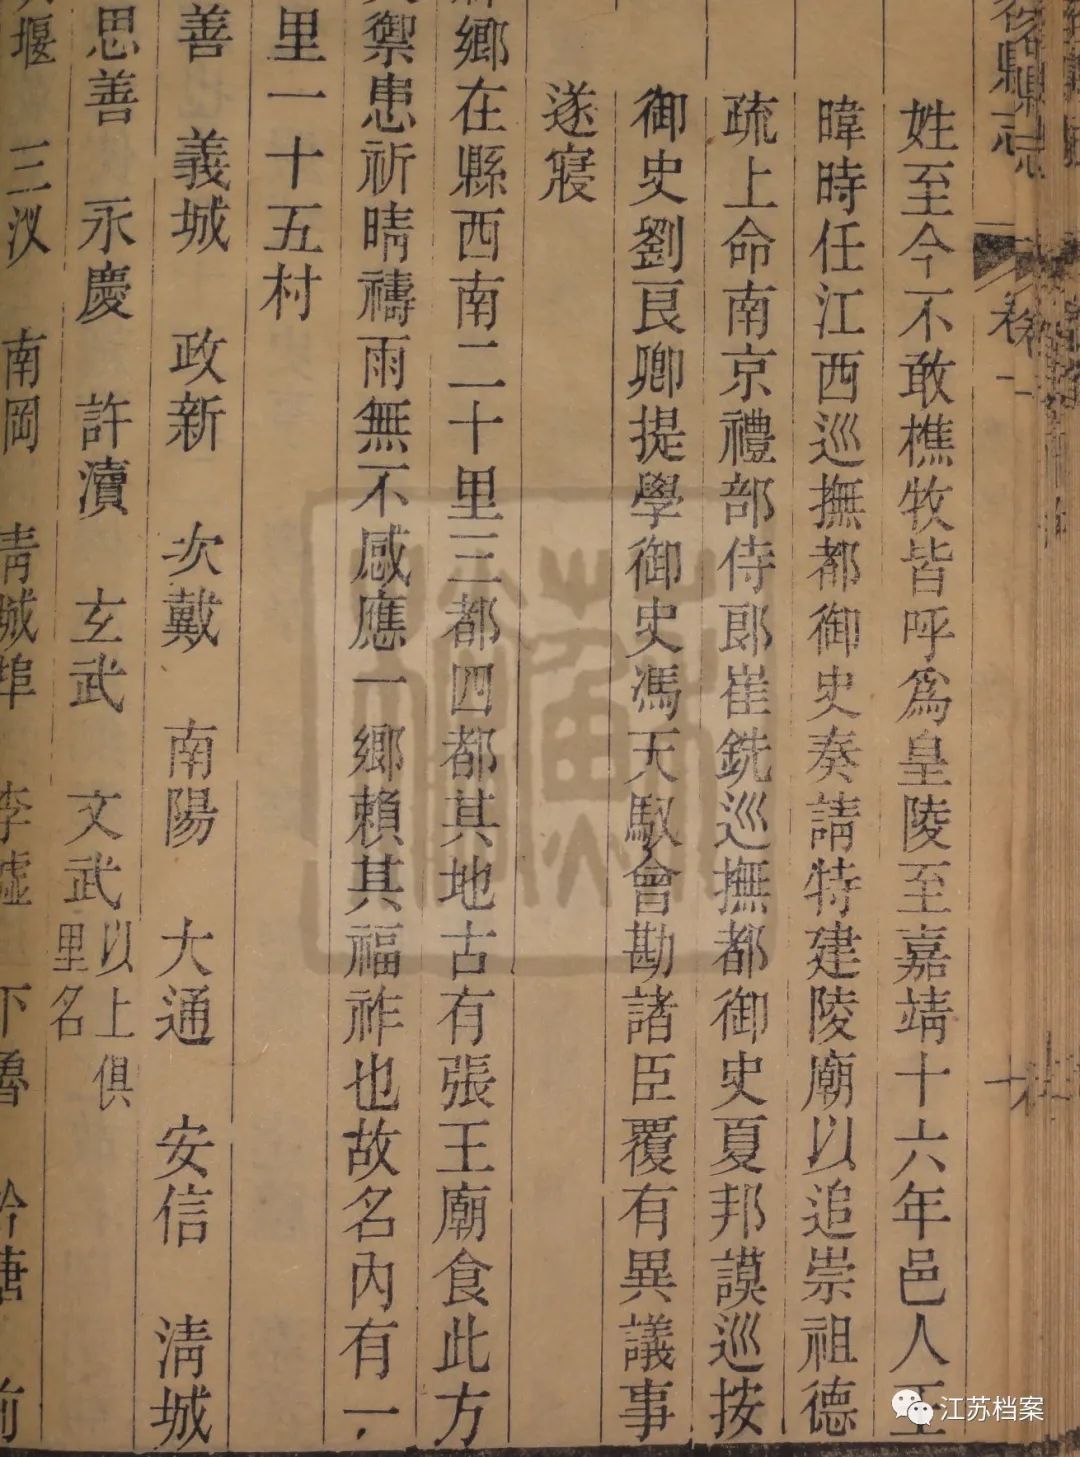 縣志
卷一
姓至今不敢樵牧皆呼爲皇陵至嘉靖十六年邑人王
暐時任江西巡撫都御史奏請特建陵廟以追崇祖德
疏上命南京禮部侍郎崔銑巡撫都御史夏邦謨巡按
御史劉良卿提學御史馮天馭會勘諸臣覆有異議事
遂寢
鄉在縣西南二十里三都四都其地古有張王廟食此方
禦患祈晴禱雨無不感應一鄉賴其福祚也故名內有一
里一十五村
善 義城 政新 次戴 南陽 大通 安信 淸城
思善 永慶 許瀆 玄武 文武 以上俱里名
堰 三汊 南岡 靑城埠 李墟 下魯 前
江苏档案